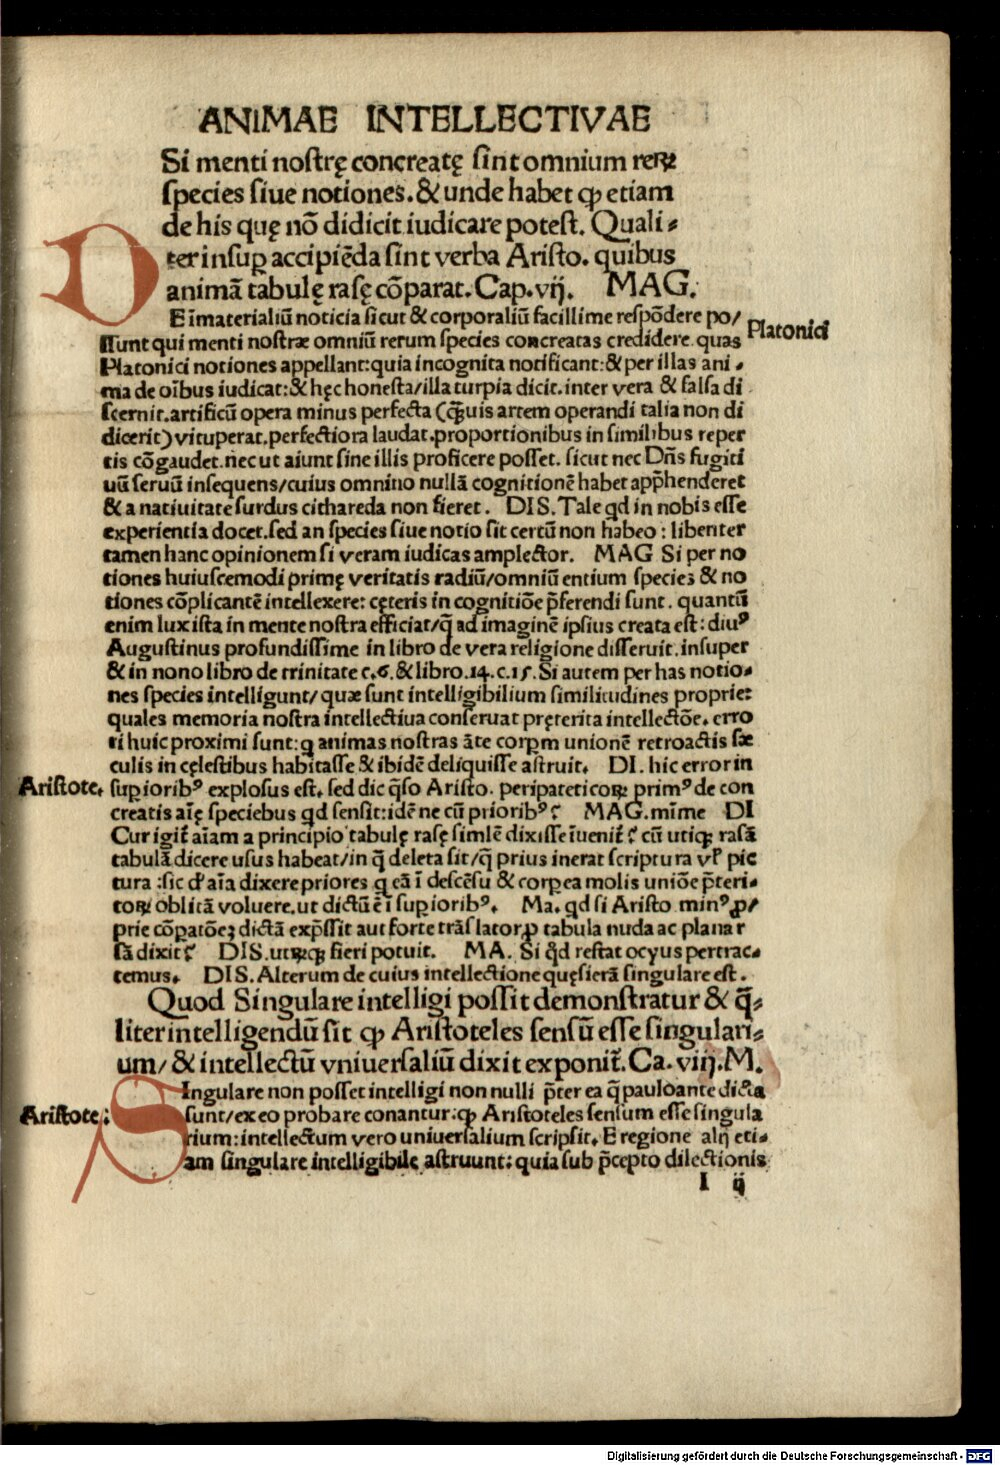 ANIMAE INTELLECTIVAE
Si menti nostrę concreatę sint omnium reꝝ
species siue notiones. & unde habet ꝙ etiam
de his quę nõ didicit iudicare potest. Quali⸗
ter insuꝑ accipiẽda sint verba Aristo. quibus
animã tabulę rasę cõparat. Cap. vij. MAG.
DE ĩmaterialiũ noticia sicut & corporaliũ facillime respõdere po/
ssunt qui menti nostræ omniũ rerum species concreatas credidere. quas
Platonici
Platonici notiones appellant: quia incognita notificant: & per illas ani⸗
ma de oĩbus iudicat: & hęc honesta/ illa turpia dicit. inter vera & falsa di
scernit. artificũ opera minus perfecta (ꝗ̃uis artem operandi talia non di
dicerit) vituperat. perfectiora laudat. proportionibus in similibus reper
tis cõgaudet. nec ut aiunt sine illis proficere posset. sicut nec Dñs fugiti
uũ seruũ insequens/ cuius omnino nullã cognitionẽ habet app̃henderet
& a natiuitate surdus cithareda non fieret. DIS. Tale qd in nobis esse
experientia docet. sed an species siue notio sit certũ non habeo: libenter
tamen hanc opinionem si veram iudicas amplector. MAG Si per no
tiones huiuscemodi primę veritatis radiũ/ omniũ entium species & no
tiones cõplicantẽ intellexere: cęteris in cognitiõe p̃ferendi sunt. quantũ
enim lux ista in mente nostra efficiat/ q̃ ad imaginẽ ipsius creata est: diuꝰ
Augustinus profundissime in libro de vera religione disseruit. insuper
& in nono libro de trinitate c. 6. & libro. 14. c. 15. Si autem per has notio⸗
nes species intelligunt/ quæ sunt intelligibilium similitudines proprie:
quales memoria nostra intellectiua conseruat pręterita intellectõe. erro
ri huic proximi sunt: q animas nostras ãte corꝑm unionẽ retroactis sæ
culis in cęlestibus habitasse & ibidẽ deliquisse astruit. DI. hic error in
Aristote. suꝑioribꝰ explosus est. sed dic q̃so Aristo. peripateticoꝝ primꝰ de con
creatis aĩę speciebus qd sensit: idẽ ne cũ prioribꝰ? MAG. mĩme DI
Cur igit̃ aĩam a principio tabulę rasę simlẽ dixisse ĩuenit̃? cũ utiqꝫ rasã
tabulã dicere usus habeat/ in q̃ deleta sit/ q̃ prius inerat scriptura vl̃ pic
tura: sic d̃ aĩa dixere priores q eã ĩ descẽsu & corꝑea molis uniõe p̃teri⸗
toꝝ oblitã voluere. ut dictũ ẽ ĩ suꝑioribꝰ. Ma. qd si Aristo. minꝰ ꝓ/
prie cõꝑatõeꝫ dictã exp̃ssit aut forte trãslatorꝫ tabula nuda ac plana r
sã dixit? DIS. utꝝqꝫ fieri potuit. MA. Si q̃d restat ocyus pertrac⸗
temus. DIS. Alterum de cuius intellectione quęsierã singulare est.
Quod Singulare intelligi possit demonstratur & q̃⸗
liter intelligendũ sit ꝙ Aristoteles sensũ esse singulari⸗
um/ & intellectũ vniuersaliũ dixit exponit̃. Ca. viij. M.
SIngulare non posset intelligi non nulli p̃ter ea q̃ pauloante dicta
Aristote: sunt/ ex eo probare conantur: ꝙ Aristoteles sensum esse singula
rium: intellectum vero uniuersalium scripsit. E regione alij eti⸗
am singulare intelligibile astruunt: quia sub p̃cepto dilectionis
I ij
Digitalisierung gefördert durch die Deutsche Forschungsgemeinschaft - DFG